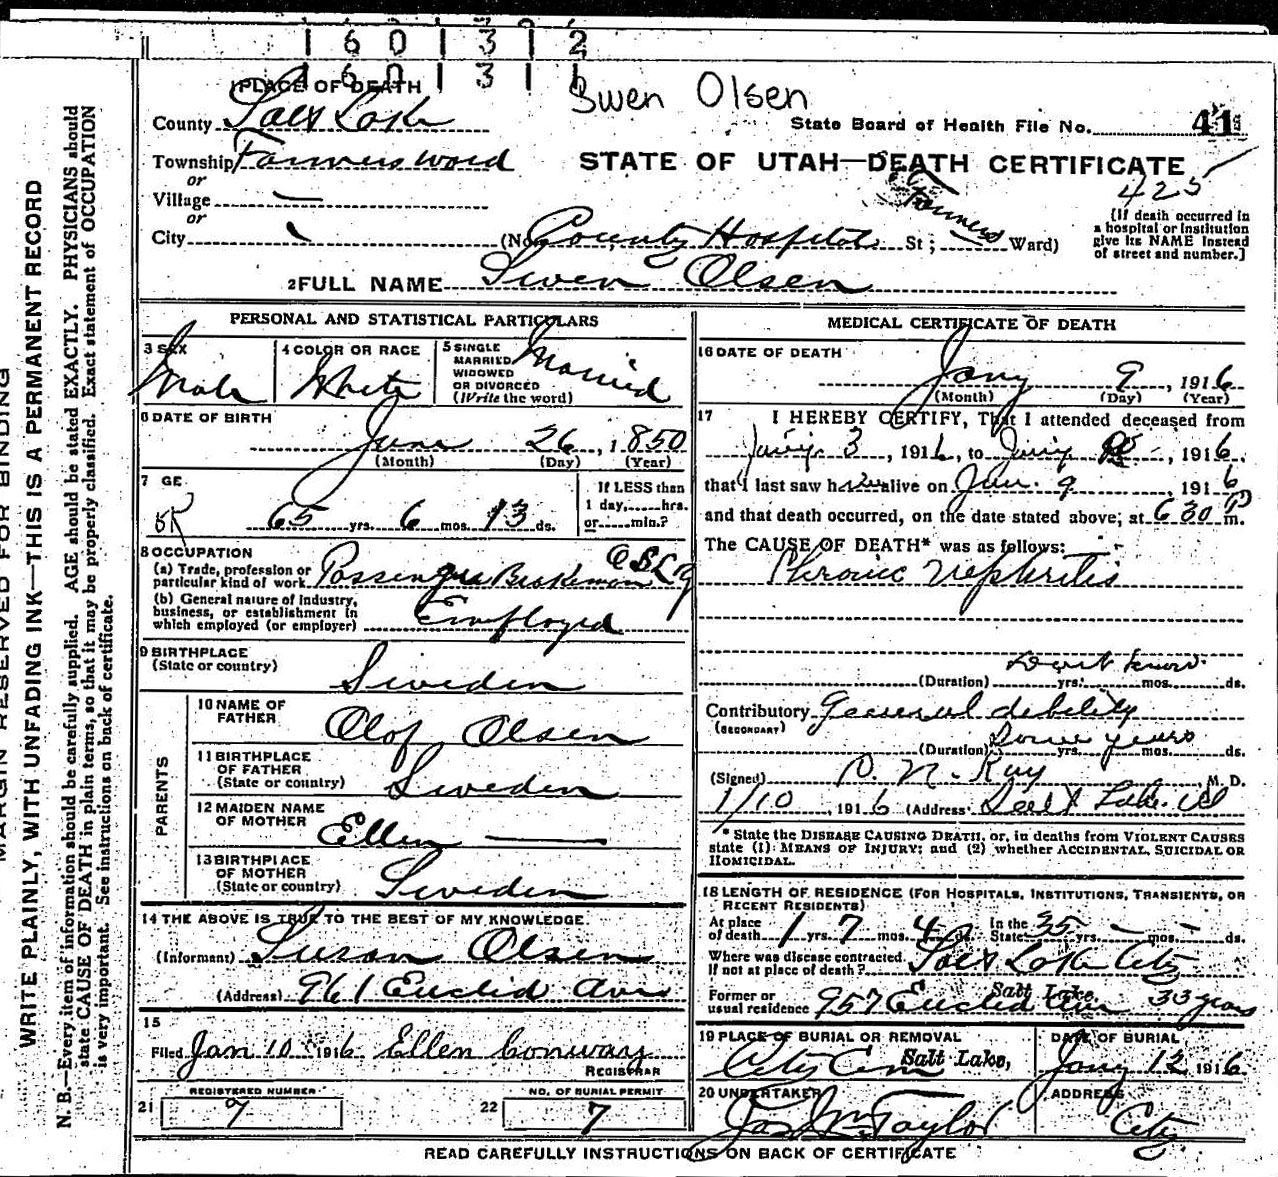 1 6 0 1 3 1 2
1 6 0 1 3 1 1
1 PLACE OF DEATH
Swen Olsen
County Salt Lake
State Board of Health File No. 41
Township Farmers Word
STATE OF UTAH—DEATH CERTIFICATE
or
425
Village —
or
[If death occurred in a hospital or institution give its NAME instead of street and number.]
City (No. County Hospital St; Farmers Ward)
2 FULL NAME Swen Olsen
PERSONAL AND STATISTICAL PARTICULARS
3 SEX Male
4 COLOR OR RACE White
5 SINGLE MARRIED WIDOWED OR DIVORCED (Write the word) Married
6 DATE OF BIRTH
June 26, 1850
(Month) (Day) (Year)
7 GE
65 yrs. 6 mos. 13 ds.
If LESS than 1 day,......hrs. or......min.?
8 OCCUPATION
(a) Trade, profession or particular kind of work Passenger Brakeman O S L
(b) General nature of industry, business, or establishment in which employed (or employer) Employed
9 BIRTHPLACE
(State or country) Sweden
PARENTS
10 NAME OF FATHER Olof Olsen
11 BIRTHPLACE OF FATHER (State or country) Sweden
12 MAIDEN NAME OF MOTHER Ellen —
13 BIRTHPLACE OF MOTHER (State or country) Sweden
14 THE ABOVE IS TRUE TO THE BEST OF MY KNOWLEDGE
(Informant) Susan Olsen
(Address) 961 Euclid Ave
15
Filed Jan 10 1916 Ellen Conway
REGISTRAR
REGISTERED NUMBER
21 7
NO. OF BURIAL PERMIT
22 7
MEDICAL CERTIFICATE OF DEATH
16 DATE OF DEATH
Jany 9, 1916
(Month) (Day) (Year)
17 I HEREBY CERTIFY, That I attended deceased from
Jany. 3, 1916, to Jany, 1916,
that I last saw h alive on Jan. 9 1916
and that death occurred, on the date stated above; at 6 30 P m.
The CAUSE OF DEATH* was as follows:
Chronic Nephritis
Don't know
(Duration) yrs. mos. ds.
Contributory General debility
(SECONDARY)
Some years
(Duration) yrs. mos. ds.
(Signed) P. N. Ray M. D.
1/10, 1916 (Address) Salt Lake
* State the DISEASE CAUSING DEATH, or, in deaths from VIOLENT CAUSES
state (1) MEANS OF INJURY; and (2) whether ACCIDENTAL, SUICIDAL OR
HOMICIDAL.
18 LENGTH OF RESIDENCE (FOR HOSPITALS, INSTITUTIONS, TRANSIENTS, OR
RECENT RESIDENTS)
At place of death 1 yrs. 7 mos. 4 ds. In the State 35 yrs. — mos. — ds.
Where was disease contracted, If not at place of death? Salt Lake City
Former or usual residence 957 Euclid Ave Salt Lake, 33 years
19 PLACE OF BURIAL OR REMOVAL
City Cem Salt Lake,
DATE OF BURIAL
Jany 12 1916
20 UNDERTAKER
Taylor
ADDRESS
City
READ CAREFULLY INSTRUCTIONS ON BACK OF CERTIFICATE
MARGIN RESERVED FOR BINDING
WRITE PLAINLY, WITH UNFADING INK—THIS IS A PERMANENT RECORD
N. B.—Every item of information should be carefully supplied. AGE should be stated EXACTLY. PHYSICIANS should
state CAUSE OF DEATH in plain terms, so that it may be properly classified. Exact statement of OCCUPATION
is very important. See instructions on back of certificate.